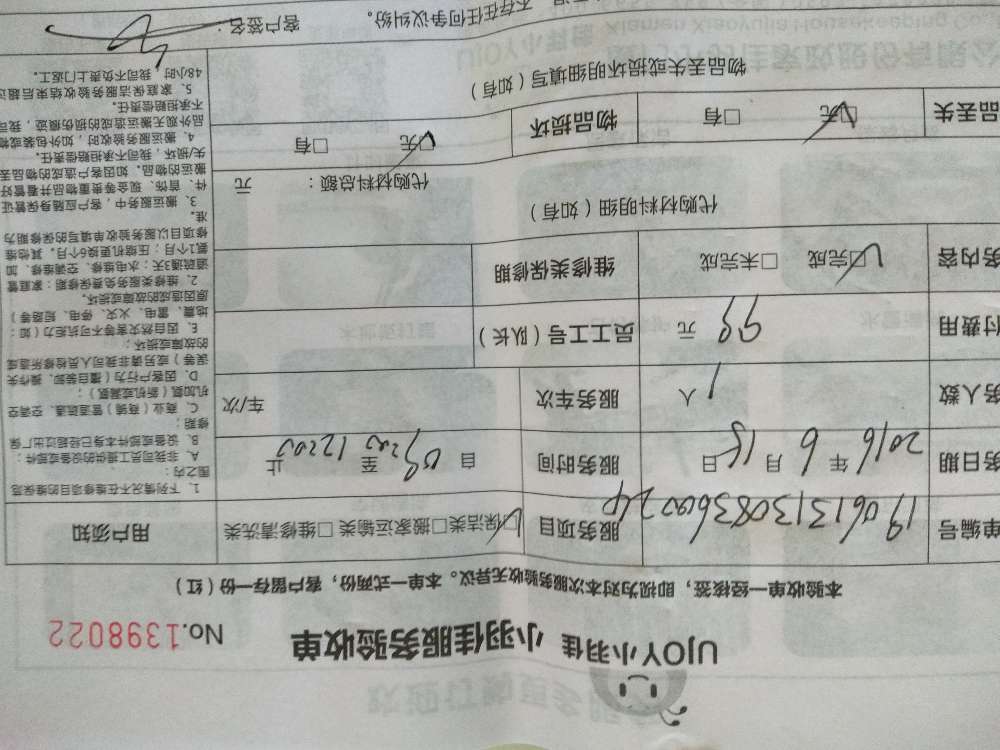 UJOY小羽佳 小羽佳服务验收单 No.1398022
本验收单一经核签，即视为对本次服务验收无异议。本单一式两份，客户留存一份（红）
单编号
服务项目 □保洁类□搬家运输类 □维修清洗类
务日期 2016 年 6 月 15 日 服务时间 自 09:00 至 12:00 止
务人数 1 人 服务车次 车/次
付费用 99 元 员工工号（队长）
务内容 □完成 □未完成 维修类保修期
代购材料明细（如有） 代购材料总额： 元
品丢失 □无 □有 物品损坏 □无 □有
物品丢失或损坏明细填写（如有）
不存在任何争议纠纷。 客户签名：
用户须知
1、下列情况不在维修项目的维保范
围之内：
A、非我司员工提供的设备或部件；
B、设备或部件本身已经超过出厂保
修期；
C、商业（商铺）管道疏通、空调空
机加氟（新机或漏氟）；
D、因客户行为（擅自装卸、操作失
误等）或另请非我司人员检修所造成
的故障或损坏；
E、因自然灾害等不可抗拒力（如：
地震、雷电、火灾、停电、短路等）
原因造成的故障或损坏。
2、维修类服务免费保修期：家庭管
道疏通3天；水电维修、空调维修、加
氟1个月；压缩机更换6个月。其他维
修项目以服务验收单填写的保修期为
准。
3、搬运服务中，客户应随身保管证
件、首饰、现金等贵重物品并看管好
搬运的物品，如因客户造成的物品丢
失/损坏，我司不承担赔偿责任。
4、搬运服务验收时，如外包装或物
品外观无搬运造成的损伤痕迹，我司
不承担赔偿责任。
5、家庭保洁服务验收结束后超过
48小时，我司不负责上门返工。